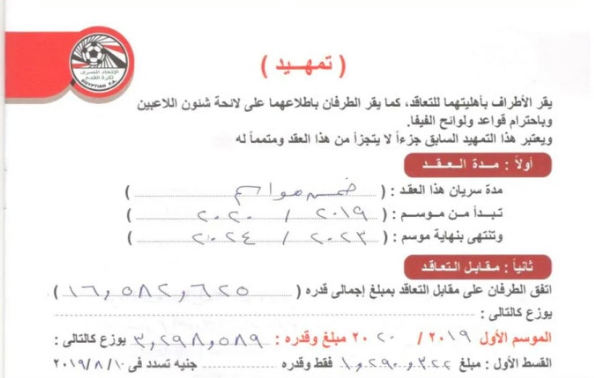 الاتحاد المصرى
لكرة القدم
EGYPTIAN F.A.
( تمهيد )
يقر الأطراف بأهليتهما للتعاقد، كما يقر الطرفان باطلاعهما على لائحة شئون اللاعبين
وباحترام قواعد ولوائح الفيفا.
ويعتبر هذا التمهيد السابق جزءاً لا يتجزأ من هذا العقد ومتمماً له
أولاً : مدة العقد
مدة سريان هذا العقد : ( خمس مواسم )
تبدأ من موسم : ( ٢٠١٩ / ٢٠٢٠ )
وتنتهى بنهاية موسم : ( ٢٠٢٣ / ٢٠٢٤ )
ثانياً : مقابل التعاقد
اتفق الطرفان على مقابل التعاقد بمبلغ إجمالى قدره ( ١٦,٥٨٢,٦٢٥ )
يوزع كالتالى :
الموسم الأول ٢٠١٩ / ٢٠٢٠ مبلغ وقدره : ٣,٢٩٨,٥٨٩ يوزع كالتالى :
القسط الأول : مبلغ ١,٢٩٠,٣٢٢ فقط وقدره جنيه تسدد فى ٢٠١٩/٨/١٠